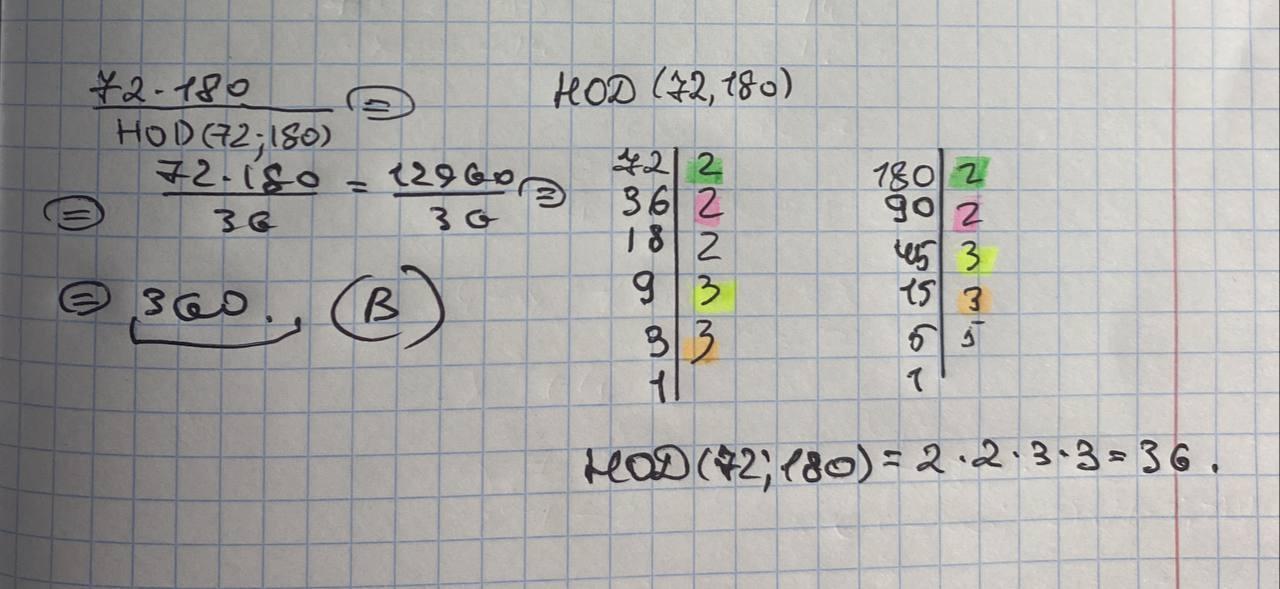 72·180
НОД(72;180)
=
= 72·180 = 12960 =
36 36
= 360. В
НОД (72,180)
72 | 2
36 | 2
18 | 2
9 | 3
3 | 3
1 |
180 | 2
90 | 2
45 | 3
15 | 3
5 | 5
1
НОД(72;180) = 2·2·3·3=36.